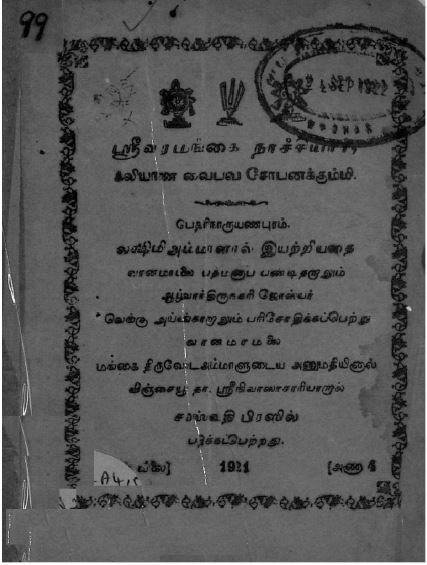 99
2 SEP 1922
ஸ்ரீவரமங்கை நாச்சியார்
கலியாண வைபவ சோபனக்கும்மி.
லக்ஷிமிஅம்மாளால் இயற்றியதை
வானமாமலை பத்மநாப பண்டிதராலும்
ஆழ்வார்திருநகரி ஜோஸ்யர்
அய்யங்காராலும் பரிசோதிக்கப்பெற்று
வானமாமலை
மங்கை திருவேடகம்மாளுடைய அனுமதியினால்
தா. ஸ்ரீநிவாஸாசாரியாரால்
சரஸ்வதி பிரஸில்
பதிக்கப்பெற்றது.
1921 [அணா